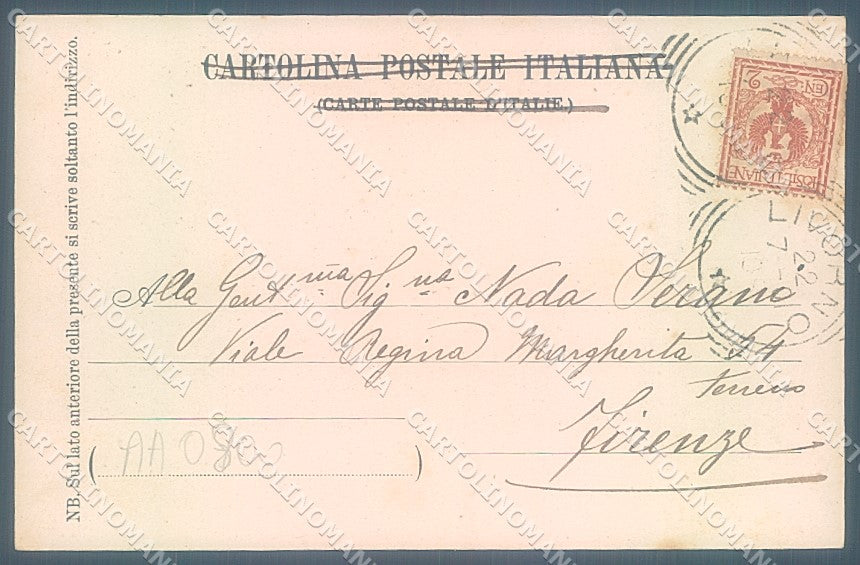 CARTOLINA POSTALE ITALIANA
(CARTE POSTALE D'ITALIE.)
CEN. 2
POSTE ITALIANE
LIVORNO
22
7
Alla Gent ma Sig na Nada Serano
Viale Regina Margherita 54
terreno
Firenze
NB. Sul lato anteriore della presente si scrive soltanto l'indirizzo.
CARTOLINOMANIA